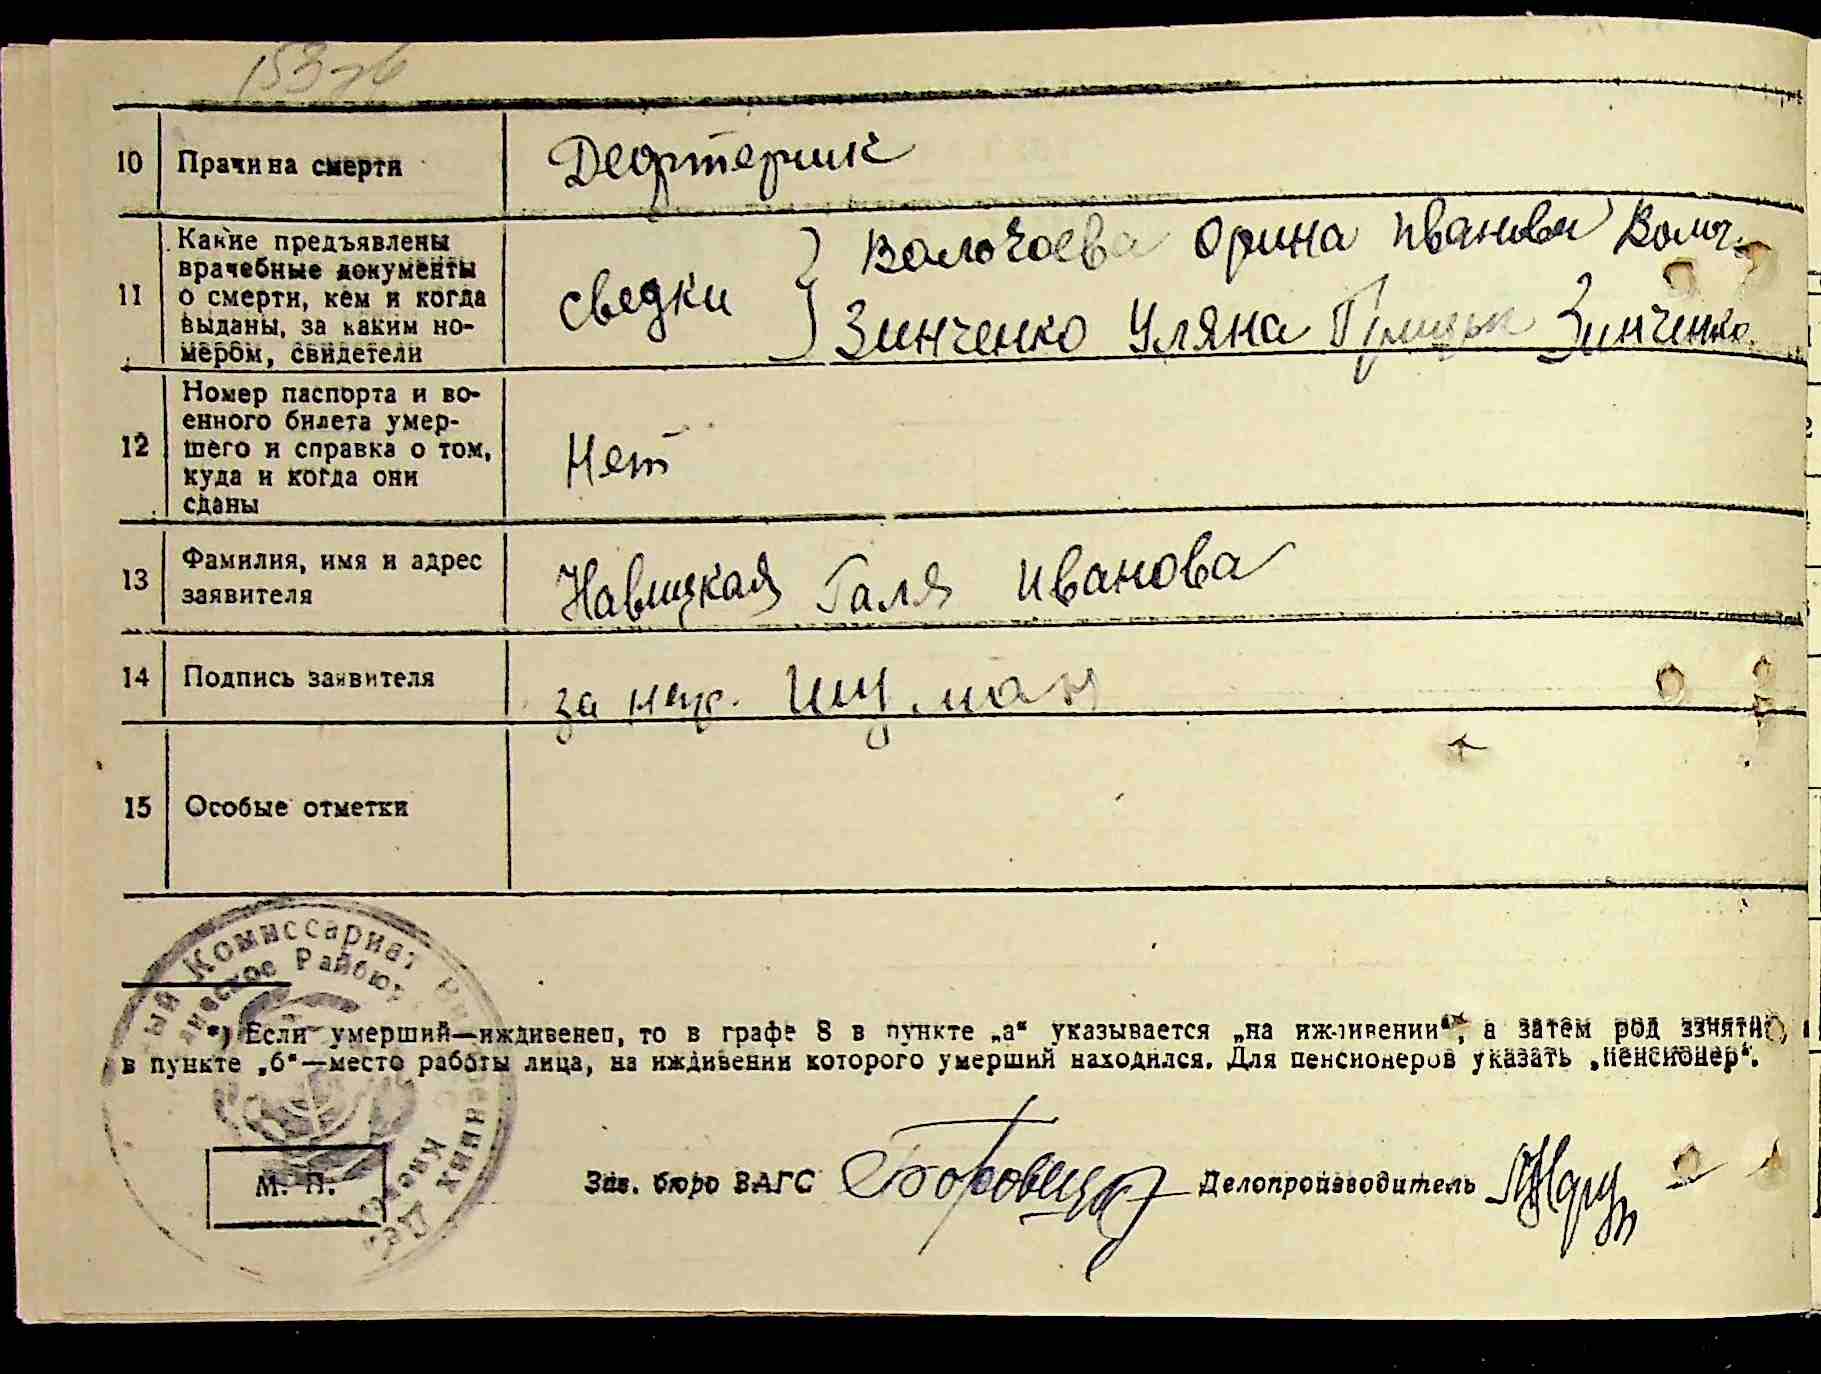 153
10 Прачина смерти Дефтерник
11 Какие предъявлены
врачебные документы
о смерти, кем и когда
выданы, за каким но-
мером, свидетели
сведки } Орина Иванови
Зинченко Уляна Зинченко
12 Номер паспорта и во-
енного билета умер-
шего и справка о том,
куда и когда они
сданы
Нет
13 Фамилия, имя и адрес
заявителя
Навицкая Галя Иванова
14 Подпись заявителя за неп. Шуман
15 Особые отметки
Комиссариат Внутренних Дел
Райбюро
*) Если умерший—иждивенец, то в графе 8 в пункте „а“ указывается „на иждивении“, а затем род занятий,
в пункте „б“—место работы лица, на иждивении которого умерший находился. Для пенсионеров указать „пенсионер“.
М. П.
Зав. бюро ЗАГС Делопроизводитель